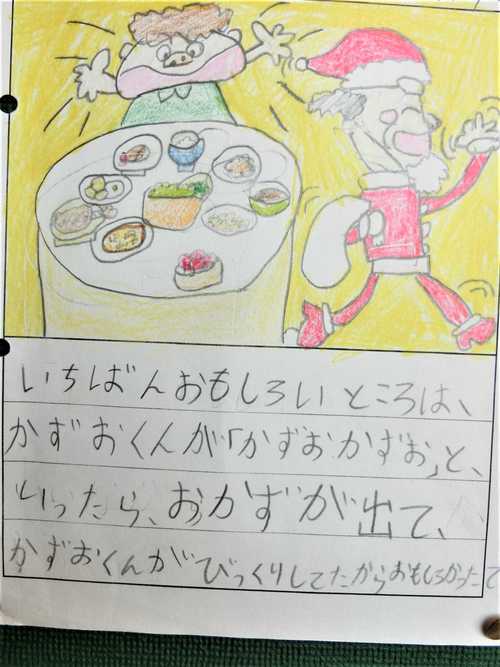 いちばんおもしろいところは、
かずおくんが「かずおかずお」と、
いったら、おかずが出て、
かずおくんがびっくりしてたからおもしろかったで